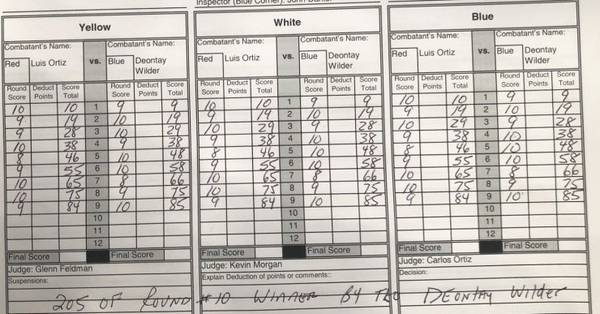 Inspector (Blue Corner): John
Yellow
Combatant's Name: vs. Combatant's Name:
Red Luis Ortiz Blue Deontay Wilder
Round Score Deduct Points Score Total Round Score Deduct Points Score Total
10 10 1 9 9
9 19 2 10 19
9 28 3 10 29
10 38 4 9 38
8 46 5 10 48
9 55 6 10 58
10 65 7 8 66
10 75 8 9 75
9 84 9 10 85
10
11
12
Final Score Final Score
Judge: Glenn Feldman
Suspensions:
White
Combatant's Name: vs. Combatant's Name:
Red Luis Ortiz Blue Deontay Wilder
Round Score Deduct Points Score Total Round Score Deduct Points Score Total
10 10 1 9 9
9 19 2 10 19
10 29 3 9 28
9 38 4 10 38
8 46 5 10 48
9 55 6 10 58
10 65 7 8 66
10 75 8 9 75
9 84 9 10 85
10
11
12
Final Score Final Score
Judge: Kevin Morgan
Explain Deduction of points or comments:
Blue
Combatant's Name: vs. Combatant's Name:
Red Luis Ortiz Blue Deontay Wilder
Round Score Deduct Points Score Total Round Score Deduct Points Score Total
10 10 1 9 9
9 19 2 10 19
10 29 3 9 28
9 38 4 10 38
8 46 5 10 48
9 55 6 10 58
10 65 7 8 66
10 75 8 9 75
9 84 9 10 85
10
11
12
Final Score Final Score
Judge: Carlos Ortiz
Decision:
205 OF ROUND #10 WINNER BY TKO Deontay Wilder